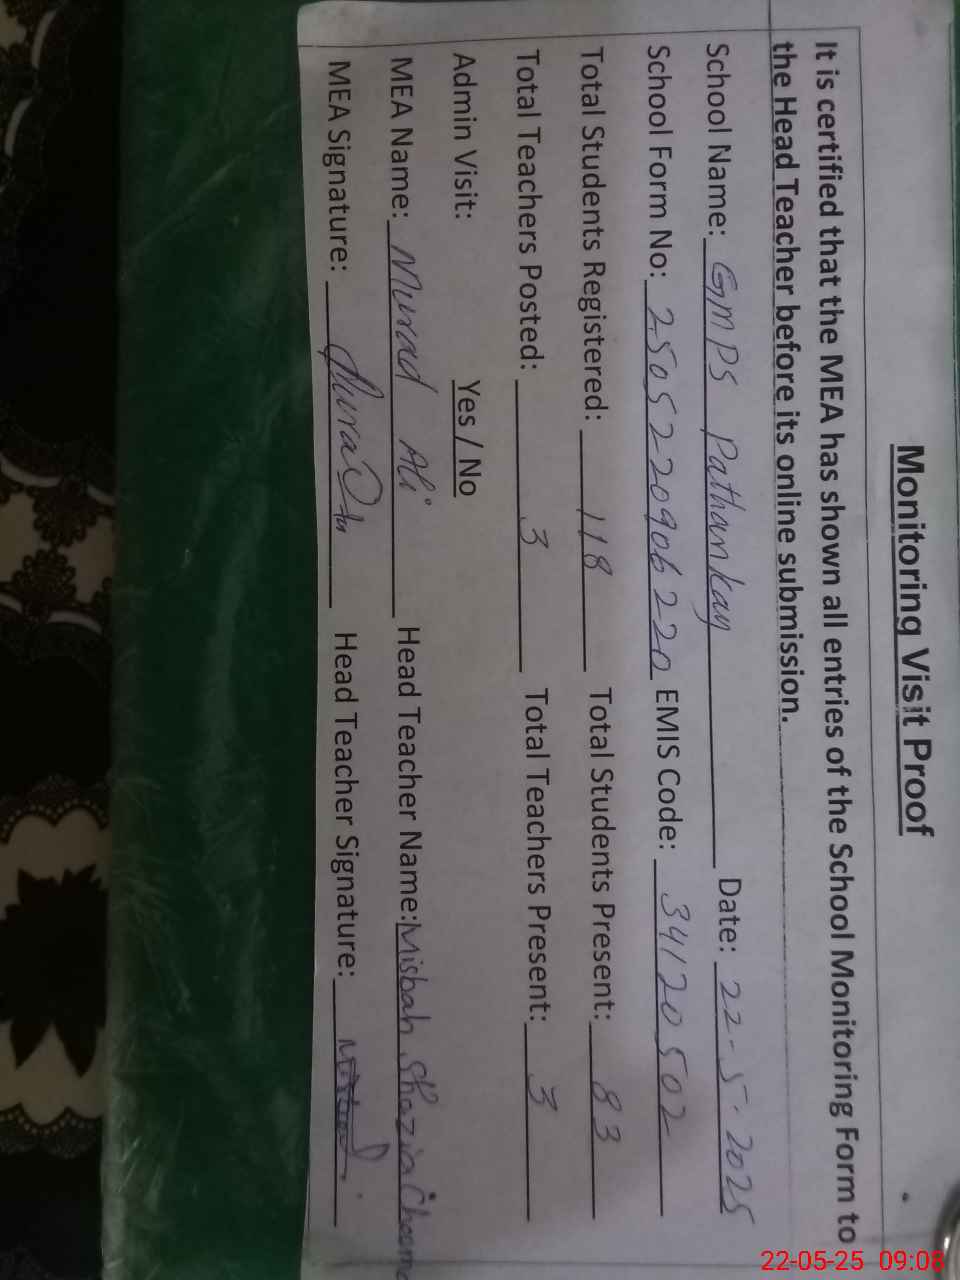 Monitoring Visit Proof
It is certified that the MEA has shown all entries of the School Monitoring Form to
the Head Teacher before its online submission.
School Name: GMPS Pathankay Date: 22-5-2025
School Form No: 2505220906220 EMIS Code: 34120502
Total Students Registered: 118 Total Students Present: 83
Total Teachers Posted: 3 Total Teachers Present: 3
Admin Visit: Yes / No
MEA Name: Murad Ali Head Teacher Name: Misbah Shazia Cheema
MEA Signature: Head Teacher Signature:
22-05-25 09:08